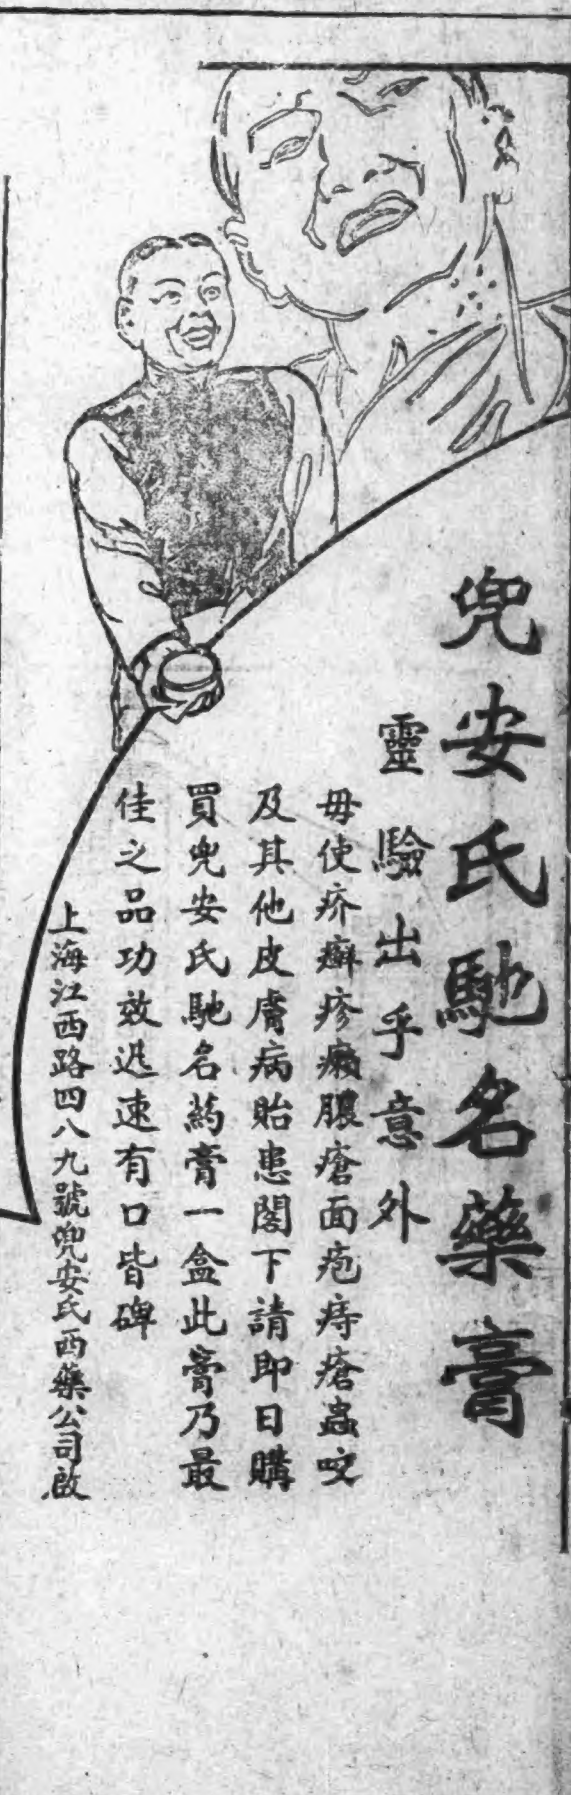 兜安氏馳名藥膏
靈驗出乎意外
毋使疥癬疹癩膿瘡面疱痔瘡蟲咬
及其他皮膚病貽患閣下請即日購
買兜安氏馳名葯膏一盒此膏乃最
佳之品功效迅速有口皆碑
上海江西路四八九號兜安氏西藥公司啟